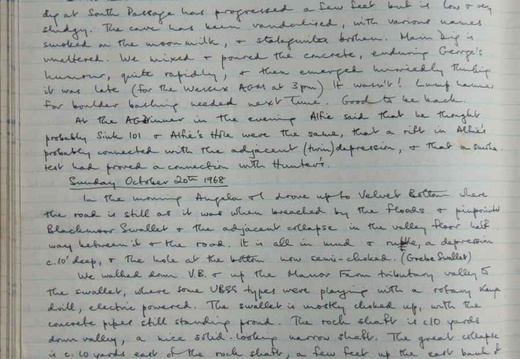 dig at South Passage has progressed a few feet but is low & very
sludgy. The cave has been vandalised, with various names
smoked on the moonmilk, & stalagmites broken. Main Dig is
unaltered. We mixed & poured the concrete, enduring George's
humour, quite rapidly, & then emerged hurriedly thinking
it was late (for the Wessex AGM at 3pm) It wasn't! Lump hammer
for boulder bashing needed next time. Good to be back.
At the AGDinner in the evening Alfie said that he thought
probably Sink 101 & Alfie's Hole were the same, that a rift in Alfie's
probably connected with the adjacent (twin) depression, & that a smoke
test had proved a connection with Hunter's.
Sunday October 20th 1968
In the morning Angela & I drove up to Velvet Bottom where
the road is still as it was when breached by the floods & pinpointed
Blackmoor Swallet & the adjacent collapse in the valley floor half
way between it & the road. It is all in mud & rubble, a depression
c.10' deep, & the hole at the bottom now semi-choked. (Grebe Swallet)
We walked down V.B. & up the Manor Farm tributary valley to
the swallet, where some UBSS types were playing with a rotary
drill, electric powered. The swallet is mostly choked up, with the
concrete pipes still standing proud. The rock shaft is c10 yards
down valley, a nice solid-looking narrow shaft. The great collapse
is c.10 yards east of the rock shaft, a few feet up the east bank &